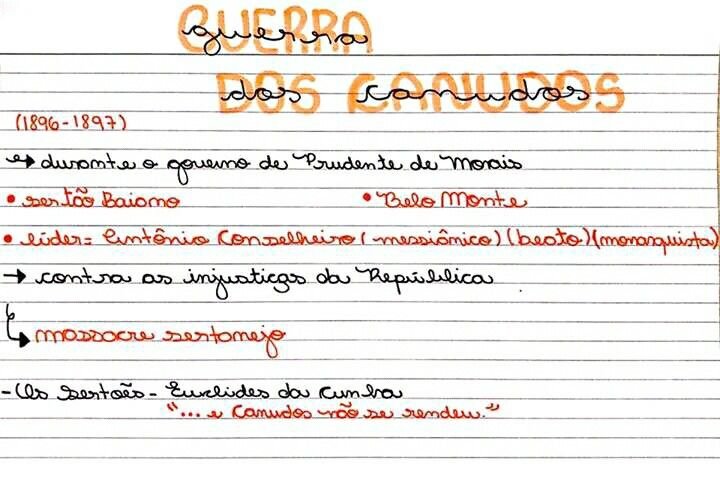 GUERRA
guerra
DOS CANUDOS
dos canudos
(1896-1897)
→ durante o governo de Prudente de Morais
• sertão Baiano • Belo Monte
• líder = Antônio Conselheiro (messiânico) (beato) (monarquista)
→ contra as injustiças da República
↳ massacre sertanejo
- Os Sertões - Euclides da Cunha
"... e Canudos não se rendeu."